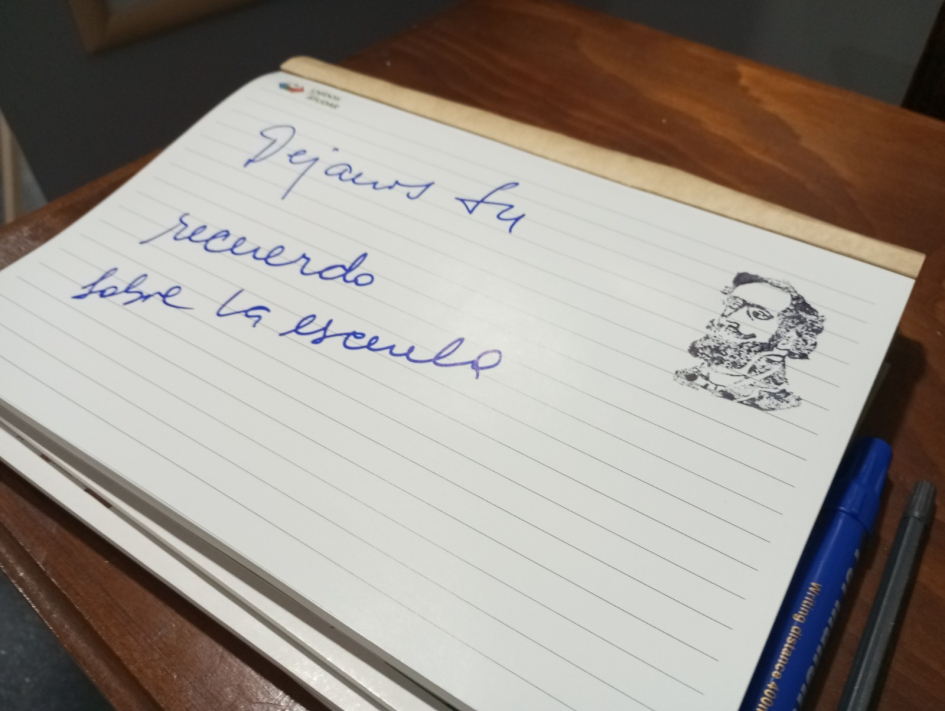 Dejanos tu
recuerdo
sobre la escuela
Writing distance 400